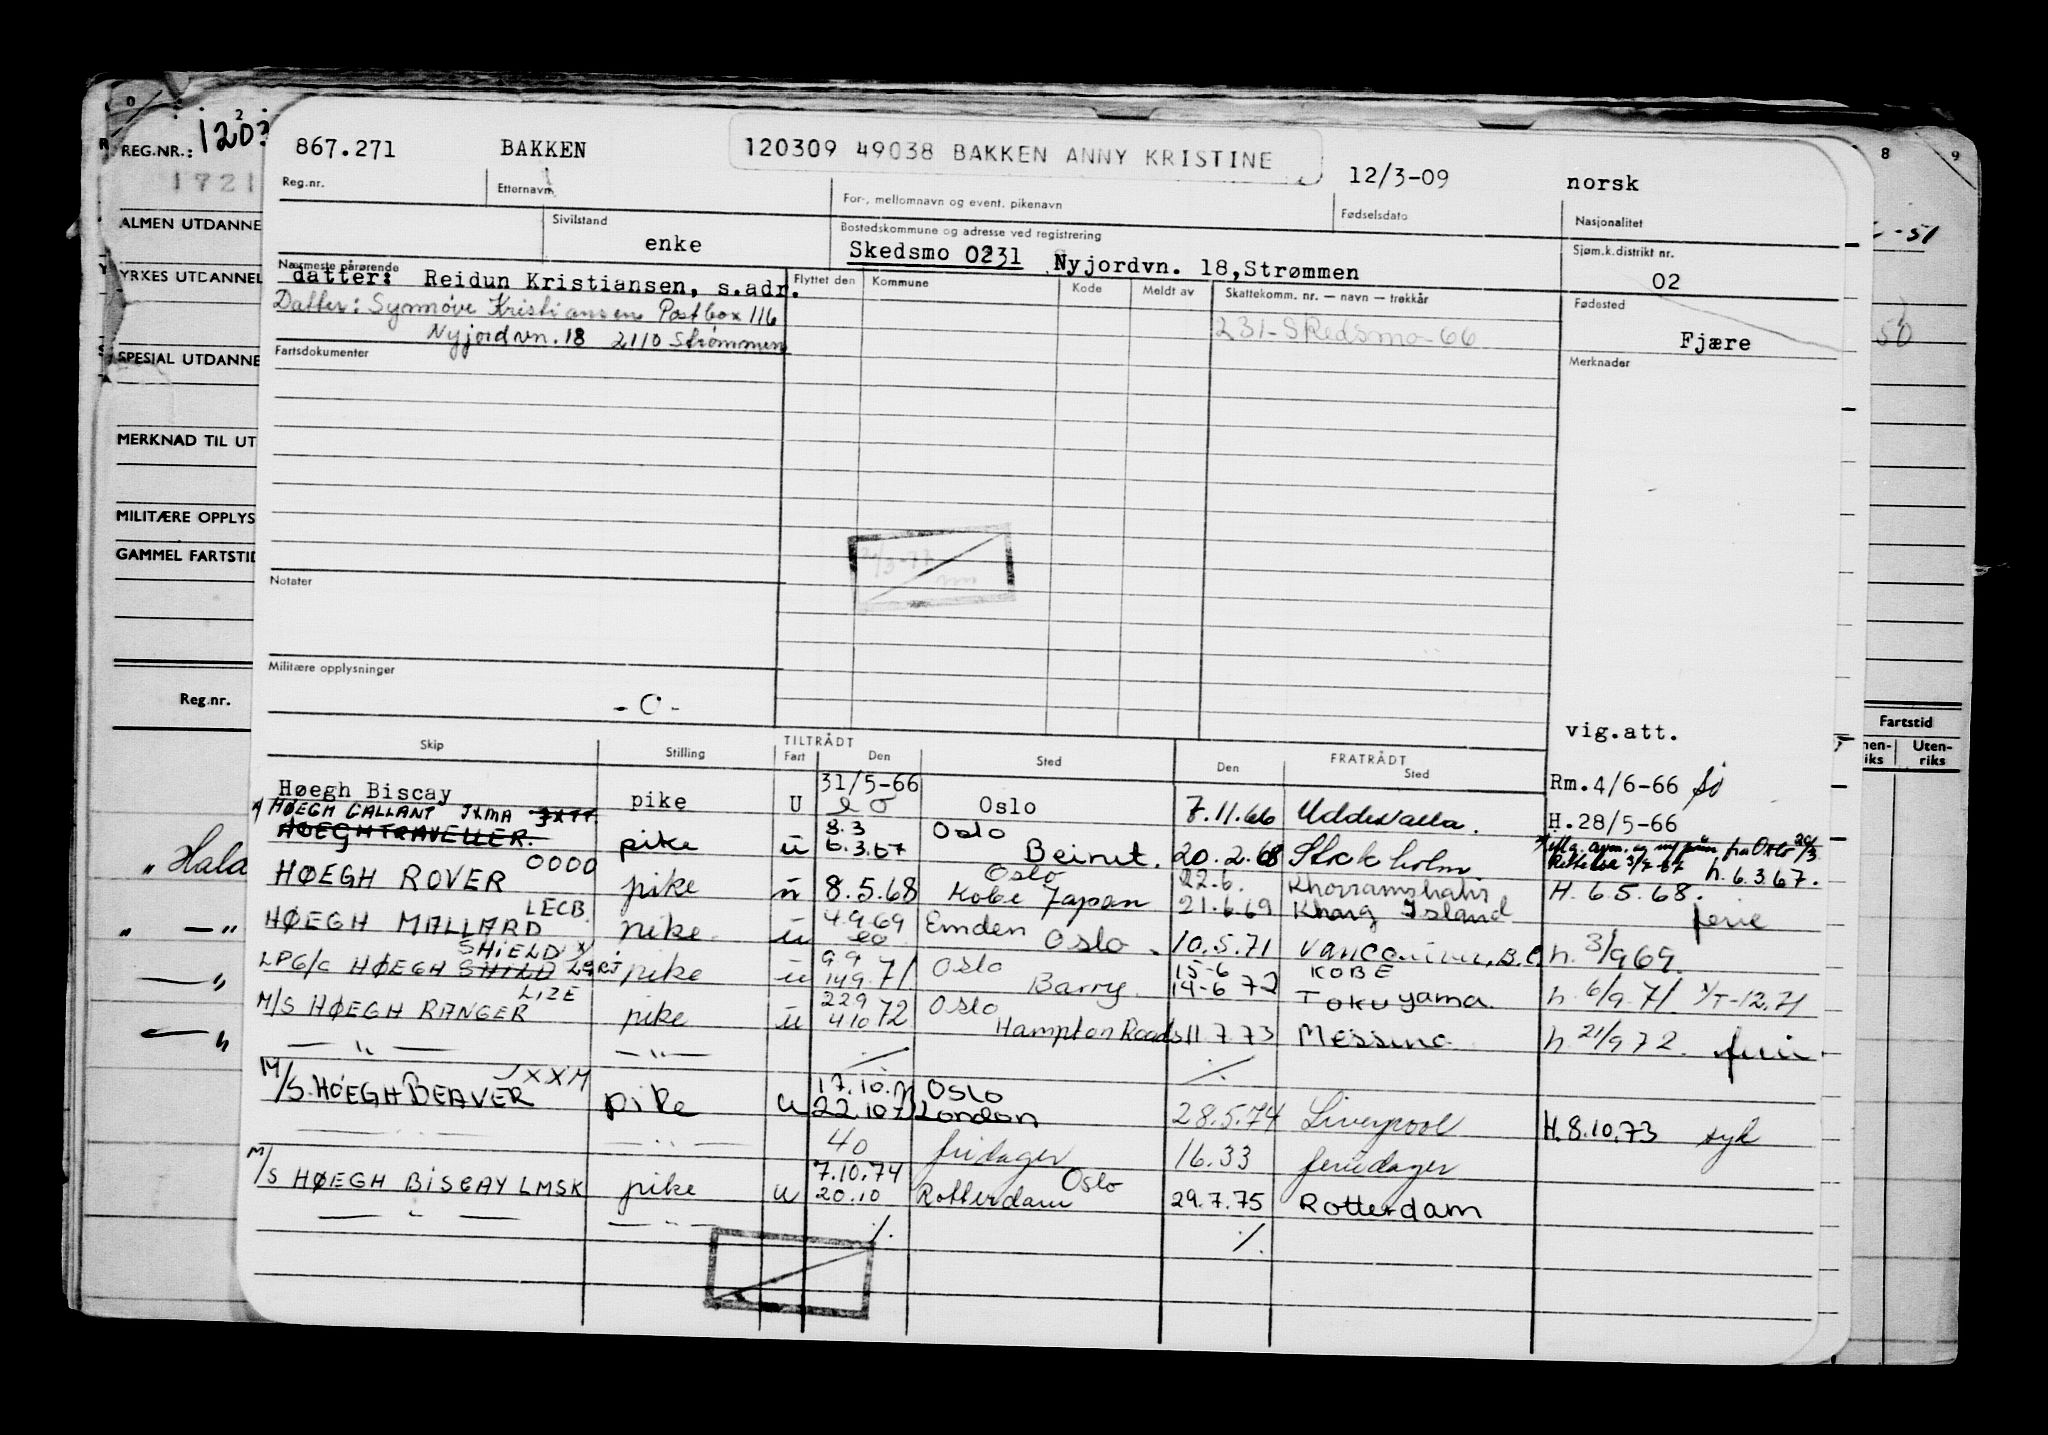 0 2 8 9
REG.NR.: 1203
1721
ALMEN UTDANNE
YRKES UTDANNEL
SPESIAL UTDANNE
MERKNAD TIL UT
MILITÆRE OPPLYS
GAMMEL FARTSTID
Reg.nr.
Fartstid
Uten-
riks
867.271 BAKKEN 120309 49038 BAKKEN ANNY KRISTINE 12/3-09 norsk
Reg.nr. Etternavn For-, mellomnavn og event. pikenavn Fødselsdato Nasjonalitet
Sivilstand Bostedskommune og adresse ved registrering Sjøm.k.distrikt nr.
enke Skedsmo 0231 Nyjordvn. 18, Strømmen 02
Nærmeste pårørende Flyttet den Kommune Kode Meldt av Skattekomm. nr. — navn — trekkår Fødested
datter: Reidun Kristiansen, s.adr.
Datter: Synnøve Kristiansen Postbox 116 231-Skedsmo-66
Nyjordvn. 18 2110 Strømmen Fjære
Fartsdokumenter Merknader
Notater
Militære opplysninger
- C -
vig.att.
Skip Stilling TILTRÅDT Fart Den Sted FRATRÅDT Den Sted
Høegh Biscay pike U 31/5-66 Oslo 7.11.66 Uddevalla. Rm.4/6-66
H.28/5-66
HØEGH GALLANT JXMA
HØEGH TRAVELLER. pike u 8.3 6.3.67 Oslo Beirut. 20.2.68 Stockholm. h. 6.3.67.
HØEGH ROVER OOOO pike u 8.5.68 Oslo Kobe Japan 22.6. 21.6.69 Khorramshahr Kharg Island H. 6.5.68. ferie
HØEGH MALLARD LECB pike u 4.9.69 Emden Oslo 10.5.71 Vancouver, B.C. h. 3/9 69.
LPG/C HØEGH SHILD SHIELD pike u 9 9 149.71. Oslo Barry. 15-6 14-6 72 KOBE Tokuyama h. 6/9.71. -12.71
M/S HØEGH RANGER LIZE pike u 229 410 72 Oslo Hampton Roads 11.7.73 Messina h. 21/9 72. ferie.
— " — — " — / /
M/S. HØEGH BEAVER JXXM pike u 17.10. 22.10 Oslo London 28.5.74 Liverpool H.8.10.73 syk
— " — — " — 40 fridager 16.33 feriedager
M/S HØEGH BISCAY LMSK pike u 7.10.74 20.10 Oslo Rotterdam 29.7.75 Rotterdam
— " — — " — /. /.